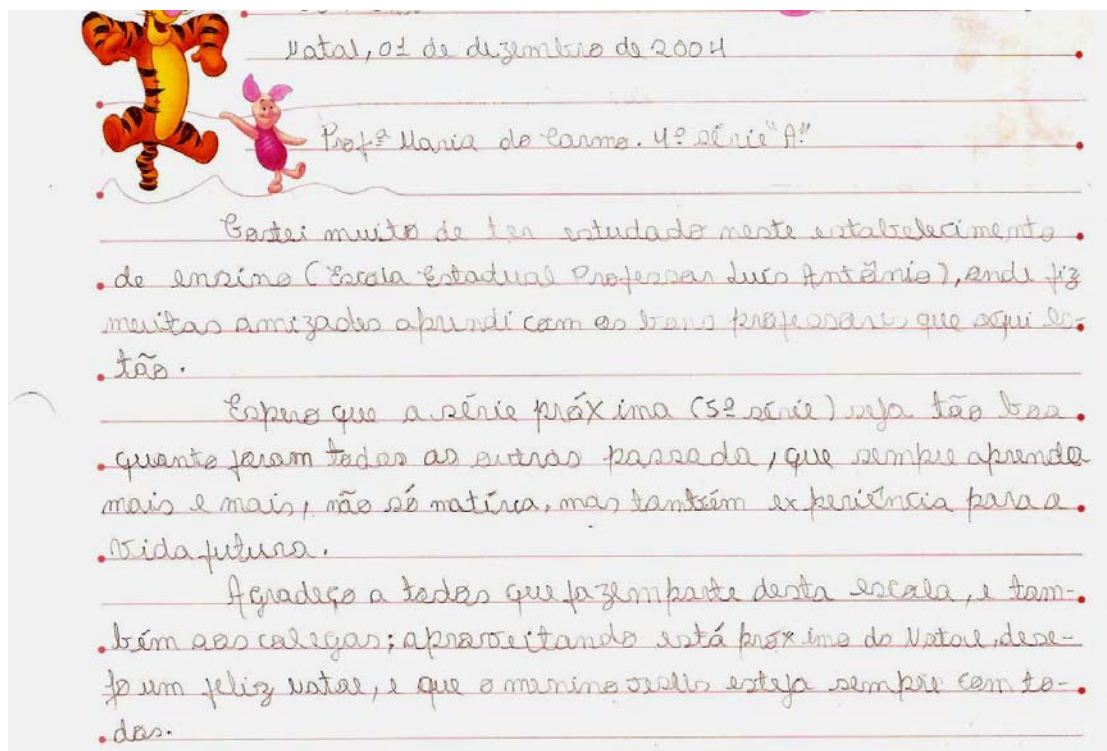 Natal, 01 de dezembro de 2004
Profª Maria do Carmo. 4ª série "A"
Gostei muito de ter estudado neste estabelecimento
de ensino (Escola Estadual Professor Luís Antônio), onde fiz
muitas amizades aprendi com os bons professores que aqui es-
tão.
Espero que a série próxima (5ª série) seja tão boa
quanto foram todas as outras passada, que sempre aprenda
mais e mais, não só matírea, mas também experiência para a
vida futura.
Agradeço a todos que fazem parte desta escola, e tam-
bém aos colegas; aproveitando está próximo do Natal, dese-
jo um feliz natal, e que o menino Jesus esteja sempre com to-
dos.